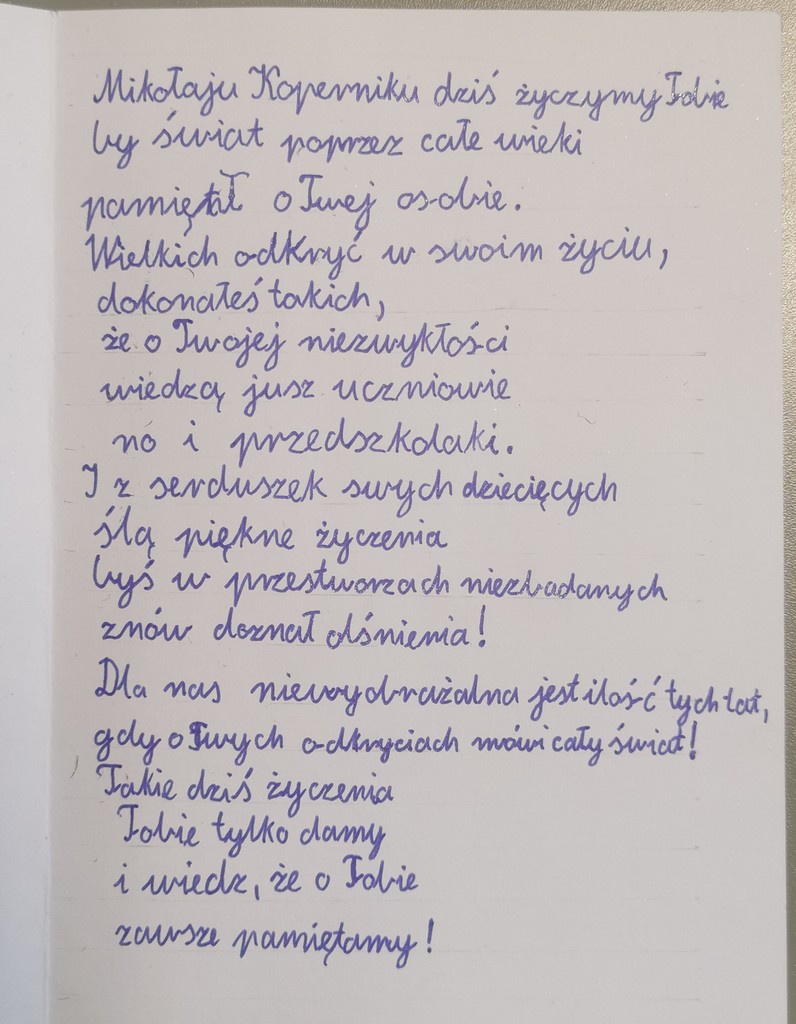 Mikołaju Koperniku dziś życzymy Tobie
by świat poprzez całe wieki
pamiętał o Twej osobie.
Wielkich odkryć w swoim życiu,
dokonałeś takich,
że o Twojej niezwykłości
wiedzą jusz uczniowie
no i przedszkolaki.
I z serduszek swych dziecięcych
ślą piękne życzenia
byś w przestworzach niezbadanych
znów doznał olśnienia!
Dla nas niewyobrażalna jest ilość tych lat,
gdy o Twych odkryciach mówi cały świat!
Takie dziś życzenia
Tobie tylko damy
i wiedz, że o Tobie
zawsze pamiętamy!